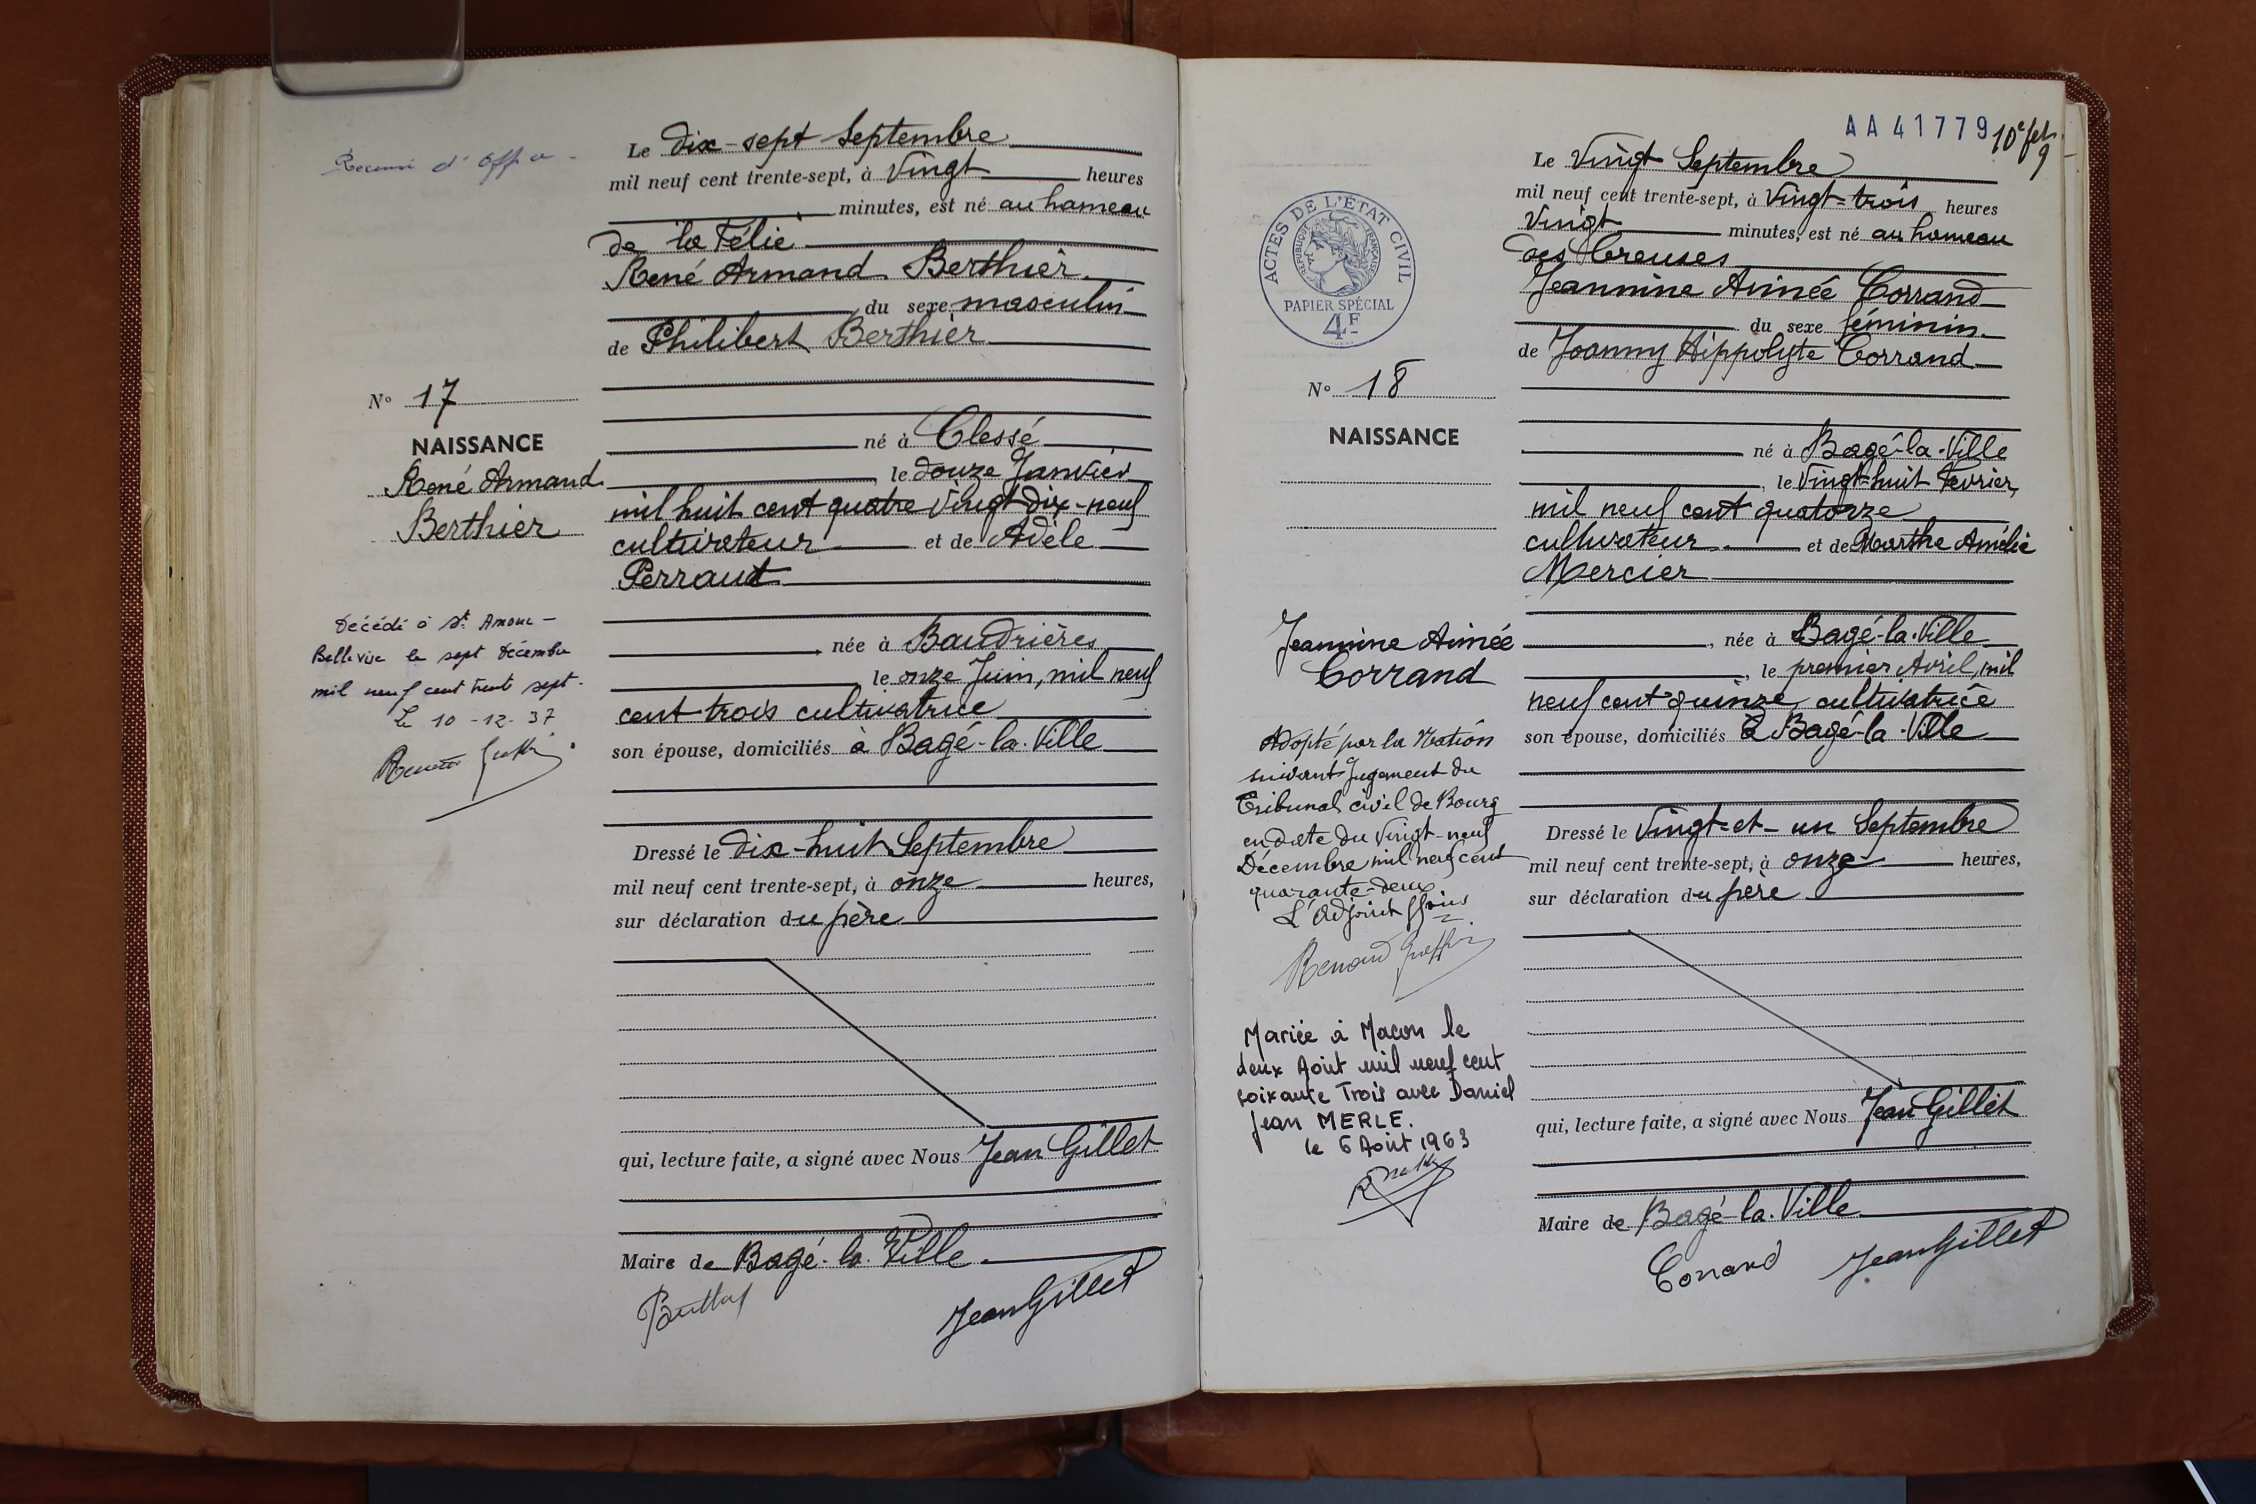 Le dix-sept Septembre
mil neuf cent trente-sept, à Vingt heures
minutes, est né au hameau
de la Félie
René Armand Berthier
du sexe masculin
de Philibert Berthier
N° 17
NAISSANCE
René Armand
Berthier
né à Clessé
le douze Janvier
mil huit cent quatre Vingt dix-neuf
cultivateur et de Adèle
Perraut
Décédé à St Amour-
Bellevue le sept Décembre
mil neuf cent trente sept.
Le 10-12-37
née à Baudrières
le onze Juin, mil neuf
cent trois cultivatrice
son épouse, domiciliés à Bagé-la-Ville
Dressé le dix-huit Septembre
mil neuf cent trente-sept, à onze heures,
sur déclaration du père
qui, lecture faite, a signé avec Nous Jean Gillet
Maire de Bagé-la-Ville
Jean Gillet
AA 41779
Le Vingt Septembre
mil neuf cent trente-sept, à Vingt-trois heures
Vingt minutes, est né au hameau
des Creuses
Jeannine Aimée Corrand
du sexe féminin
de Joanny Hippolyte Corrand
ACTES DE L'ÉTAT CIVIL
RÉPUBLIQUE FRANÇAISE
PAPIER SPÉCIAL
4F
N° 18
NAISSANCE
né à Bagé-la-Ville
le Vingt-huit Février,
mil neuf cent quatorze
cultivateur et de Marthe Amélie
Mercier
Jeannine Aimée
Corrand
née à Bagé-la-Ville
, le premier Avril, mil
neuf cent quinze, cultivatrice
son épouse, domiciliés à Bagé-la-Ville
Adopté par la Nation
suivant Jugement du
Tribunal civil de Bourg
en date du Vingt-neuf
Décembre mil neuf cent
quarante-deux
L'Adjoint
Mariée à Macon le
deux Août mil neuf cent
soixante Trois avec Daniel
Jean MERLE.
le 6 Août 1963
Dressé le Vingt-et-un Septembre
mil neuf cent trente-sept, à onze heures,
sur déclaration du père
qui, lecture faite, a signé avec Nous Jean Gillet
Maire de Bagé-la-Ville
Corrand Jean Gillet